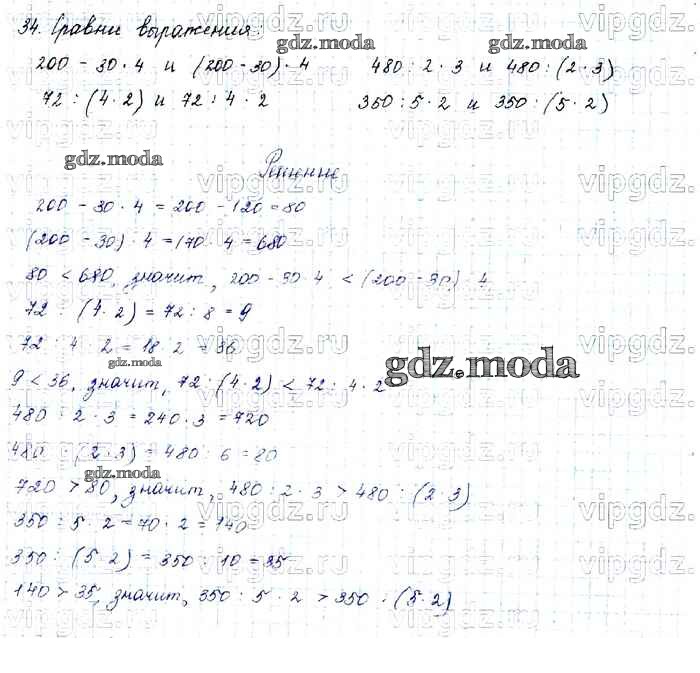 34. Сравни выражения:
200 - 30 · 4 и (200 - 30) · 4 480 : 2 · 3 и 480 : (2 · 3)
72 : (4 · 2) и 72 : 4 · 2 350 : 5 · 2 и 350 : (5 · 2)
Решение
200 - 30 · 4 = 200 - 120 = 80
(200 - 30) · 4 = 170 · 4 = 680
80 < 680, значит, 200 - 30 · 4 < (200 - 30) · 4
72 : (4 · 2) = 72 : 8 = 9
72 : 4 · 2 = 18 · 2 = 36
9 < 36, значит, 72 : (4 · 2) < 72 : 4 · 2
480 : 2 · 3 = 240 · 3 = 720
480 : (2 · 3) = 480 : 6 = 80
720 > 80, значит, 480 : 2 · 3 > 480 : (2 · 3)
350 : 5 · 2 = 70 · 2 = 140
350 : (5 · 2) = 350 : 10 = 35
140 > 35, значит, 350 : 5 · 2 > 350 : (5 · 2)
gdz.moda
gdz.moda
gdz.moda
gdz.moda
gdz.moda
vipgdz.ru